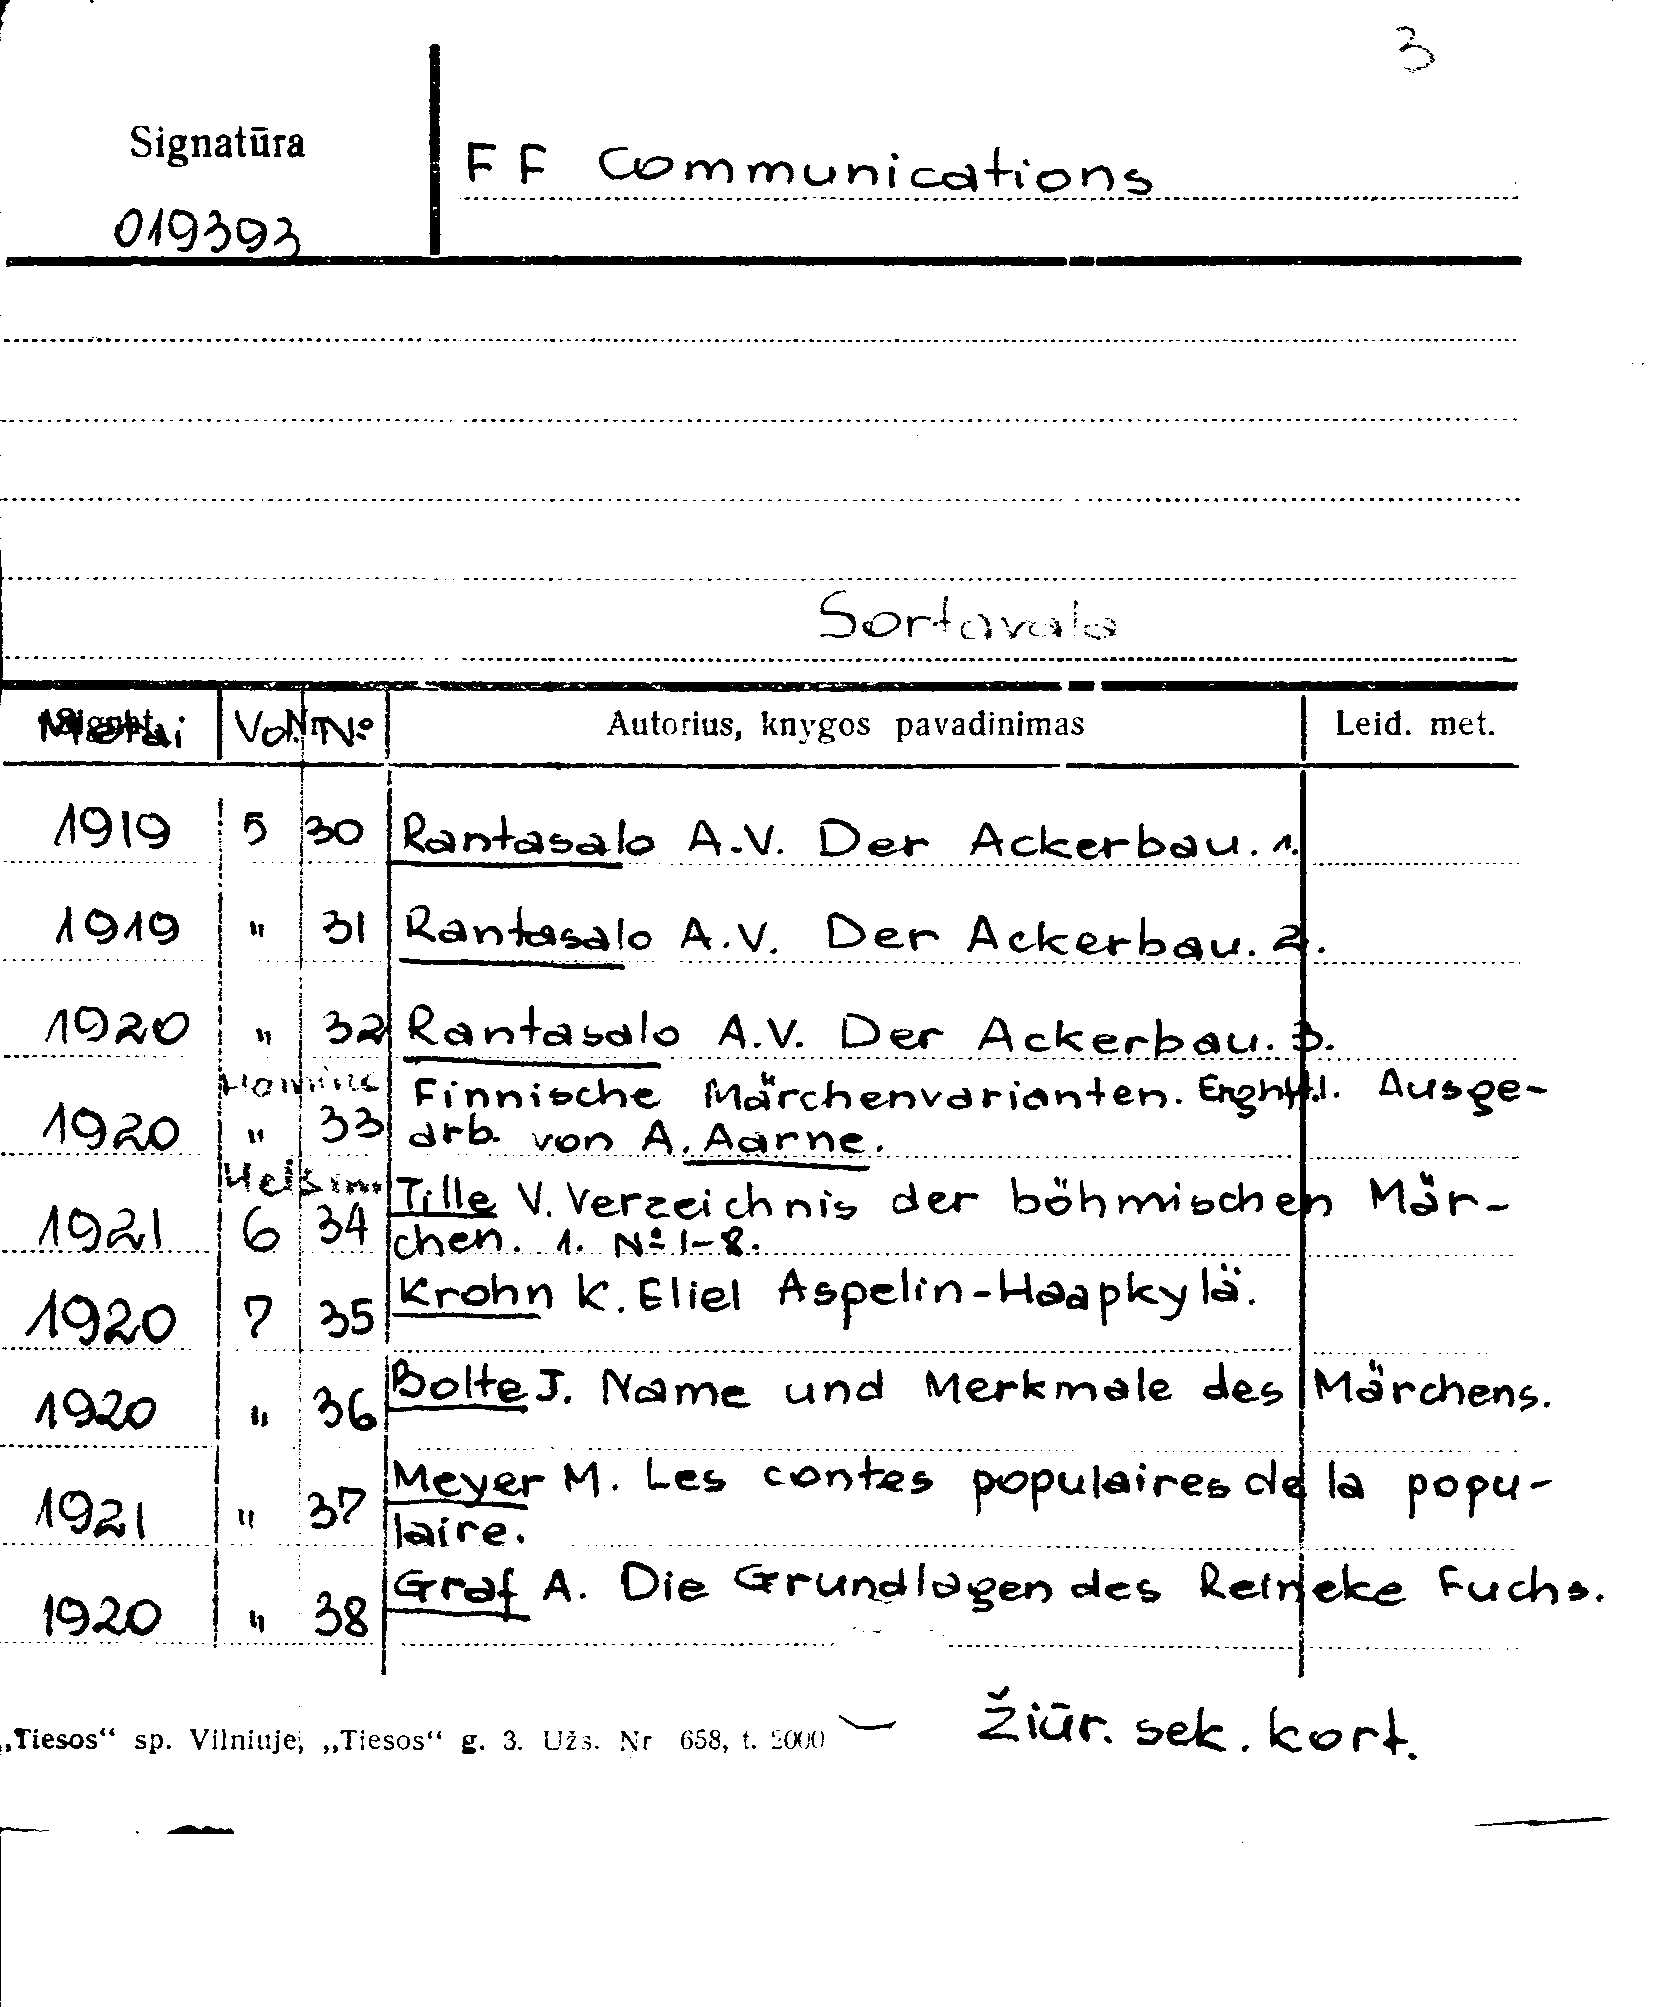 3
Signatūra
FF Communications
019393
Sortavala
Motai Vol. No Autorius, knygos pavadinimas Leid. met.
1919 5 30 Rantasalo A.V. Der Ackerbau. 1.
1919 " 31 Rantasalo A.V. Der Ackerbau. 2.
1920 " 32 Rantasalo A.V. Der Ackerbau. 3.
Finnische Märchenvarianten. Erghft.1. Ausge-
1920 " 33 arb. von A. Aarne.
Helsin. Tille V. Verzeichnis der böhmischen Mär-
1921 6 34 chen. 1. No 1-8.
1920 7 35 Krohn K. Eliel Aspelin-Haapkylä.
1920 " 36 Bolte J. Name und Merkmale des Märchens.
Meyer M. Les contes populaires de la popu-
1921 " 37 laire.
1920 " 38 Graf A. Die Grundlagen des Reineke Fuchs.
„Tiesos“ sp. Vilniuje, „Tiesos“ g. 3. Užs. Nr 658, t. 5000
Žiūr. sek. kort.